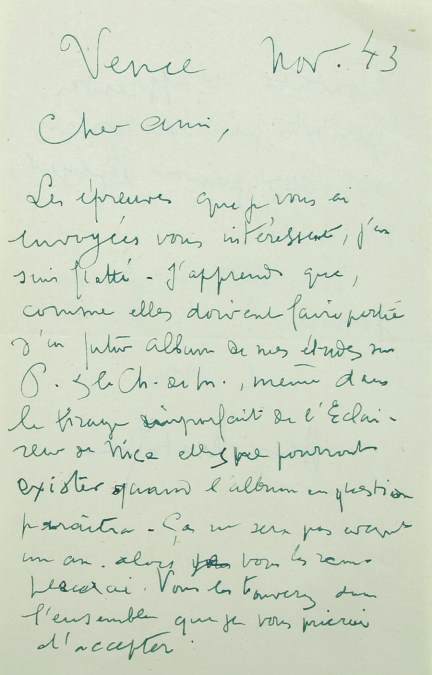 Vence Nov. 43
Cher ami,
Les épreuves que je vous ai
envoyées vous intéressent, j'en
suis flatté - J'apprends que,
comme elles doivent faire partie
d'un futur album de mes études sur
P. de Ch. de M., même dans
le tirage imparfait de l'Eclai-
reur de Nice elles ne pourront
exister quand l'album en question
paraîtra - Ça ne sera pas avant
un an. alors vous les
Vous les trouverez dans
l'ensemble que je vous prierai
d'accepter.